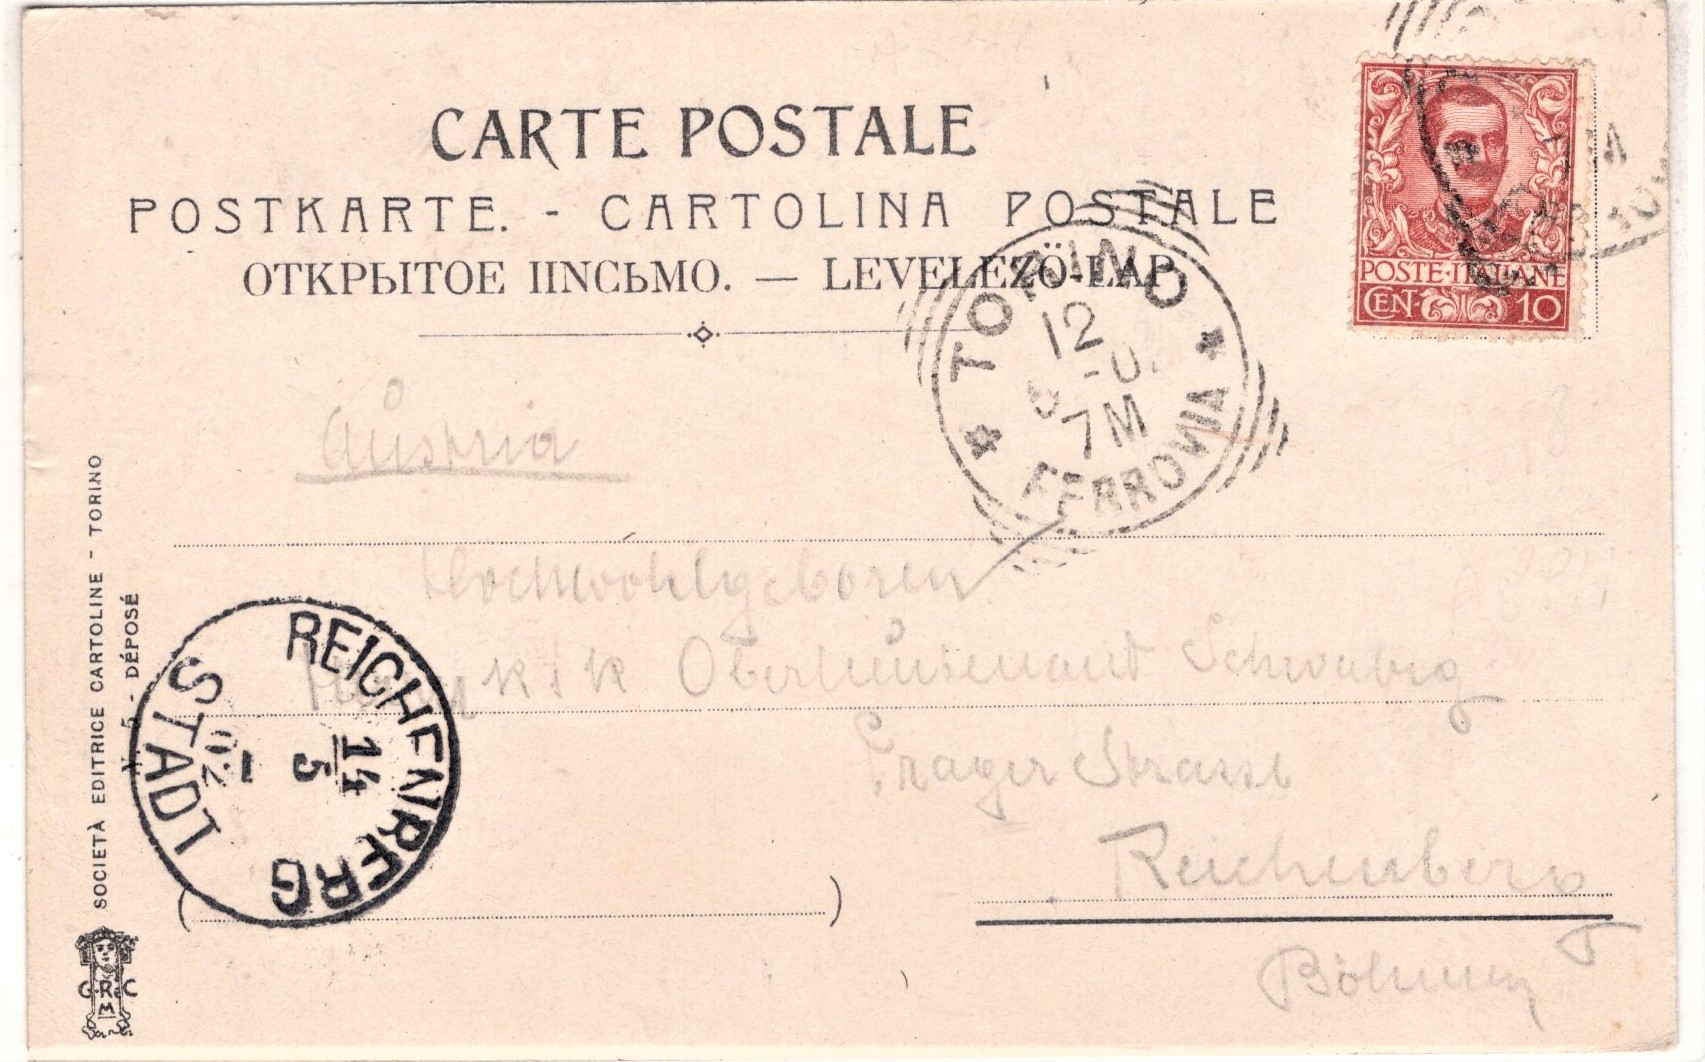 CARTE POSTALE
POSTKARTE. - CARTOLINA POSTALE
ОТКРЫТОЕ IINCЬMO. — LEVELEZÖ-LAP
POSTE·ITALIANE
CEN· 10
TORINO
12
7M
FERROVIA
Austria
Hochwohlgeboren
Herrn k & k Oberlieutenant
Prager Strasse
Reichenberg
Böhmen
REICHENBERG
14
5
02
I
STADT
SOCIETÀ EDITRICE CARTOLINE - TORINO
N. 5 - DÉPOSÉ
G R C
M